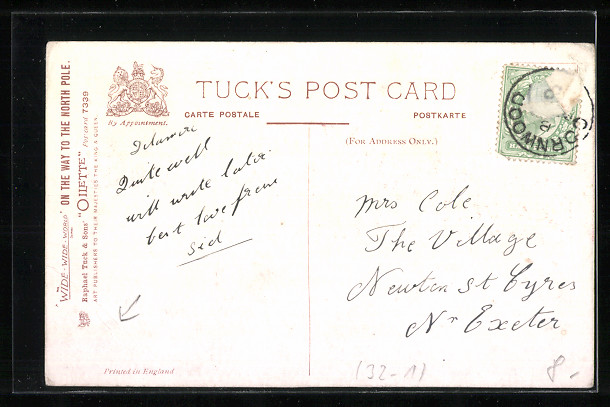 TUCK'S POST CARD
CARTE POSTALE
POSTKARTE
(FOR ADDRESS ONLY.)
By Appointment.
"WIDE-WIDE-WORLD" ON THE WAY TO THE NORTH POLE.
Raphael Tuck & Sons' "OILETTE" Postcard 7339
ART PUBLISHERS TO THEIR MAJESTIES THE KING & QUEEN.
Delamere
Quite well
will write later
best love from
Sid
Mrs Cole
The Village
Newton St Cyres
Nr Exeter
CORNWOOD
Printed in England
(32-1)
8.-